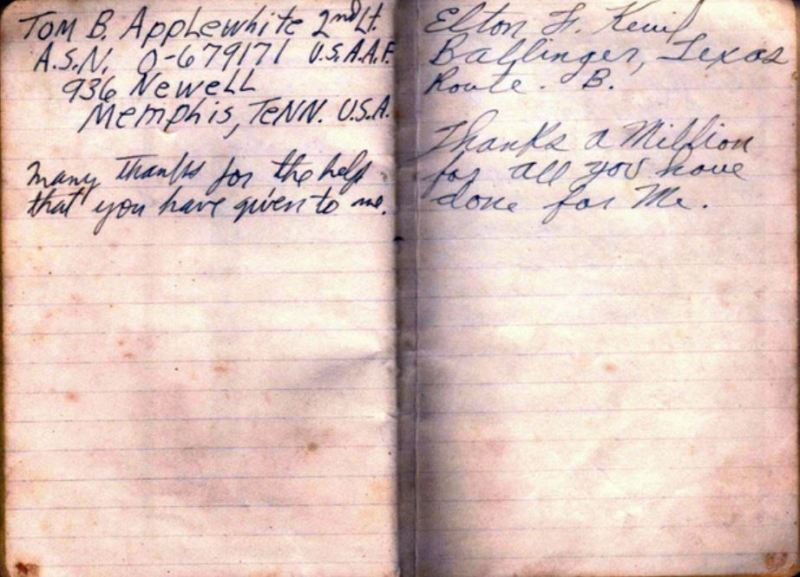 Tom B. Applewhite 2nd Lt.
A.S.N. O-679171 U.S.A.A.F.
936 Newell
Memphis, Tenn. U.S.A.
Many thanks for the help
that you have given to me.
Elton F. Kevil
Ballinger, Texas
Route. B.
Thanks a Million
for all you have
done for Me.